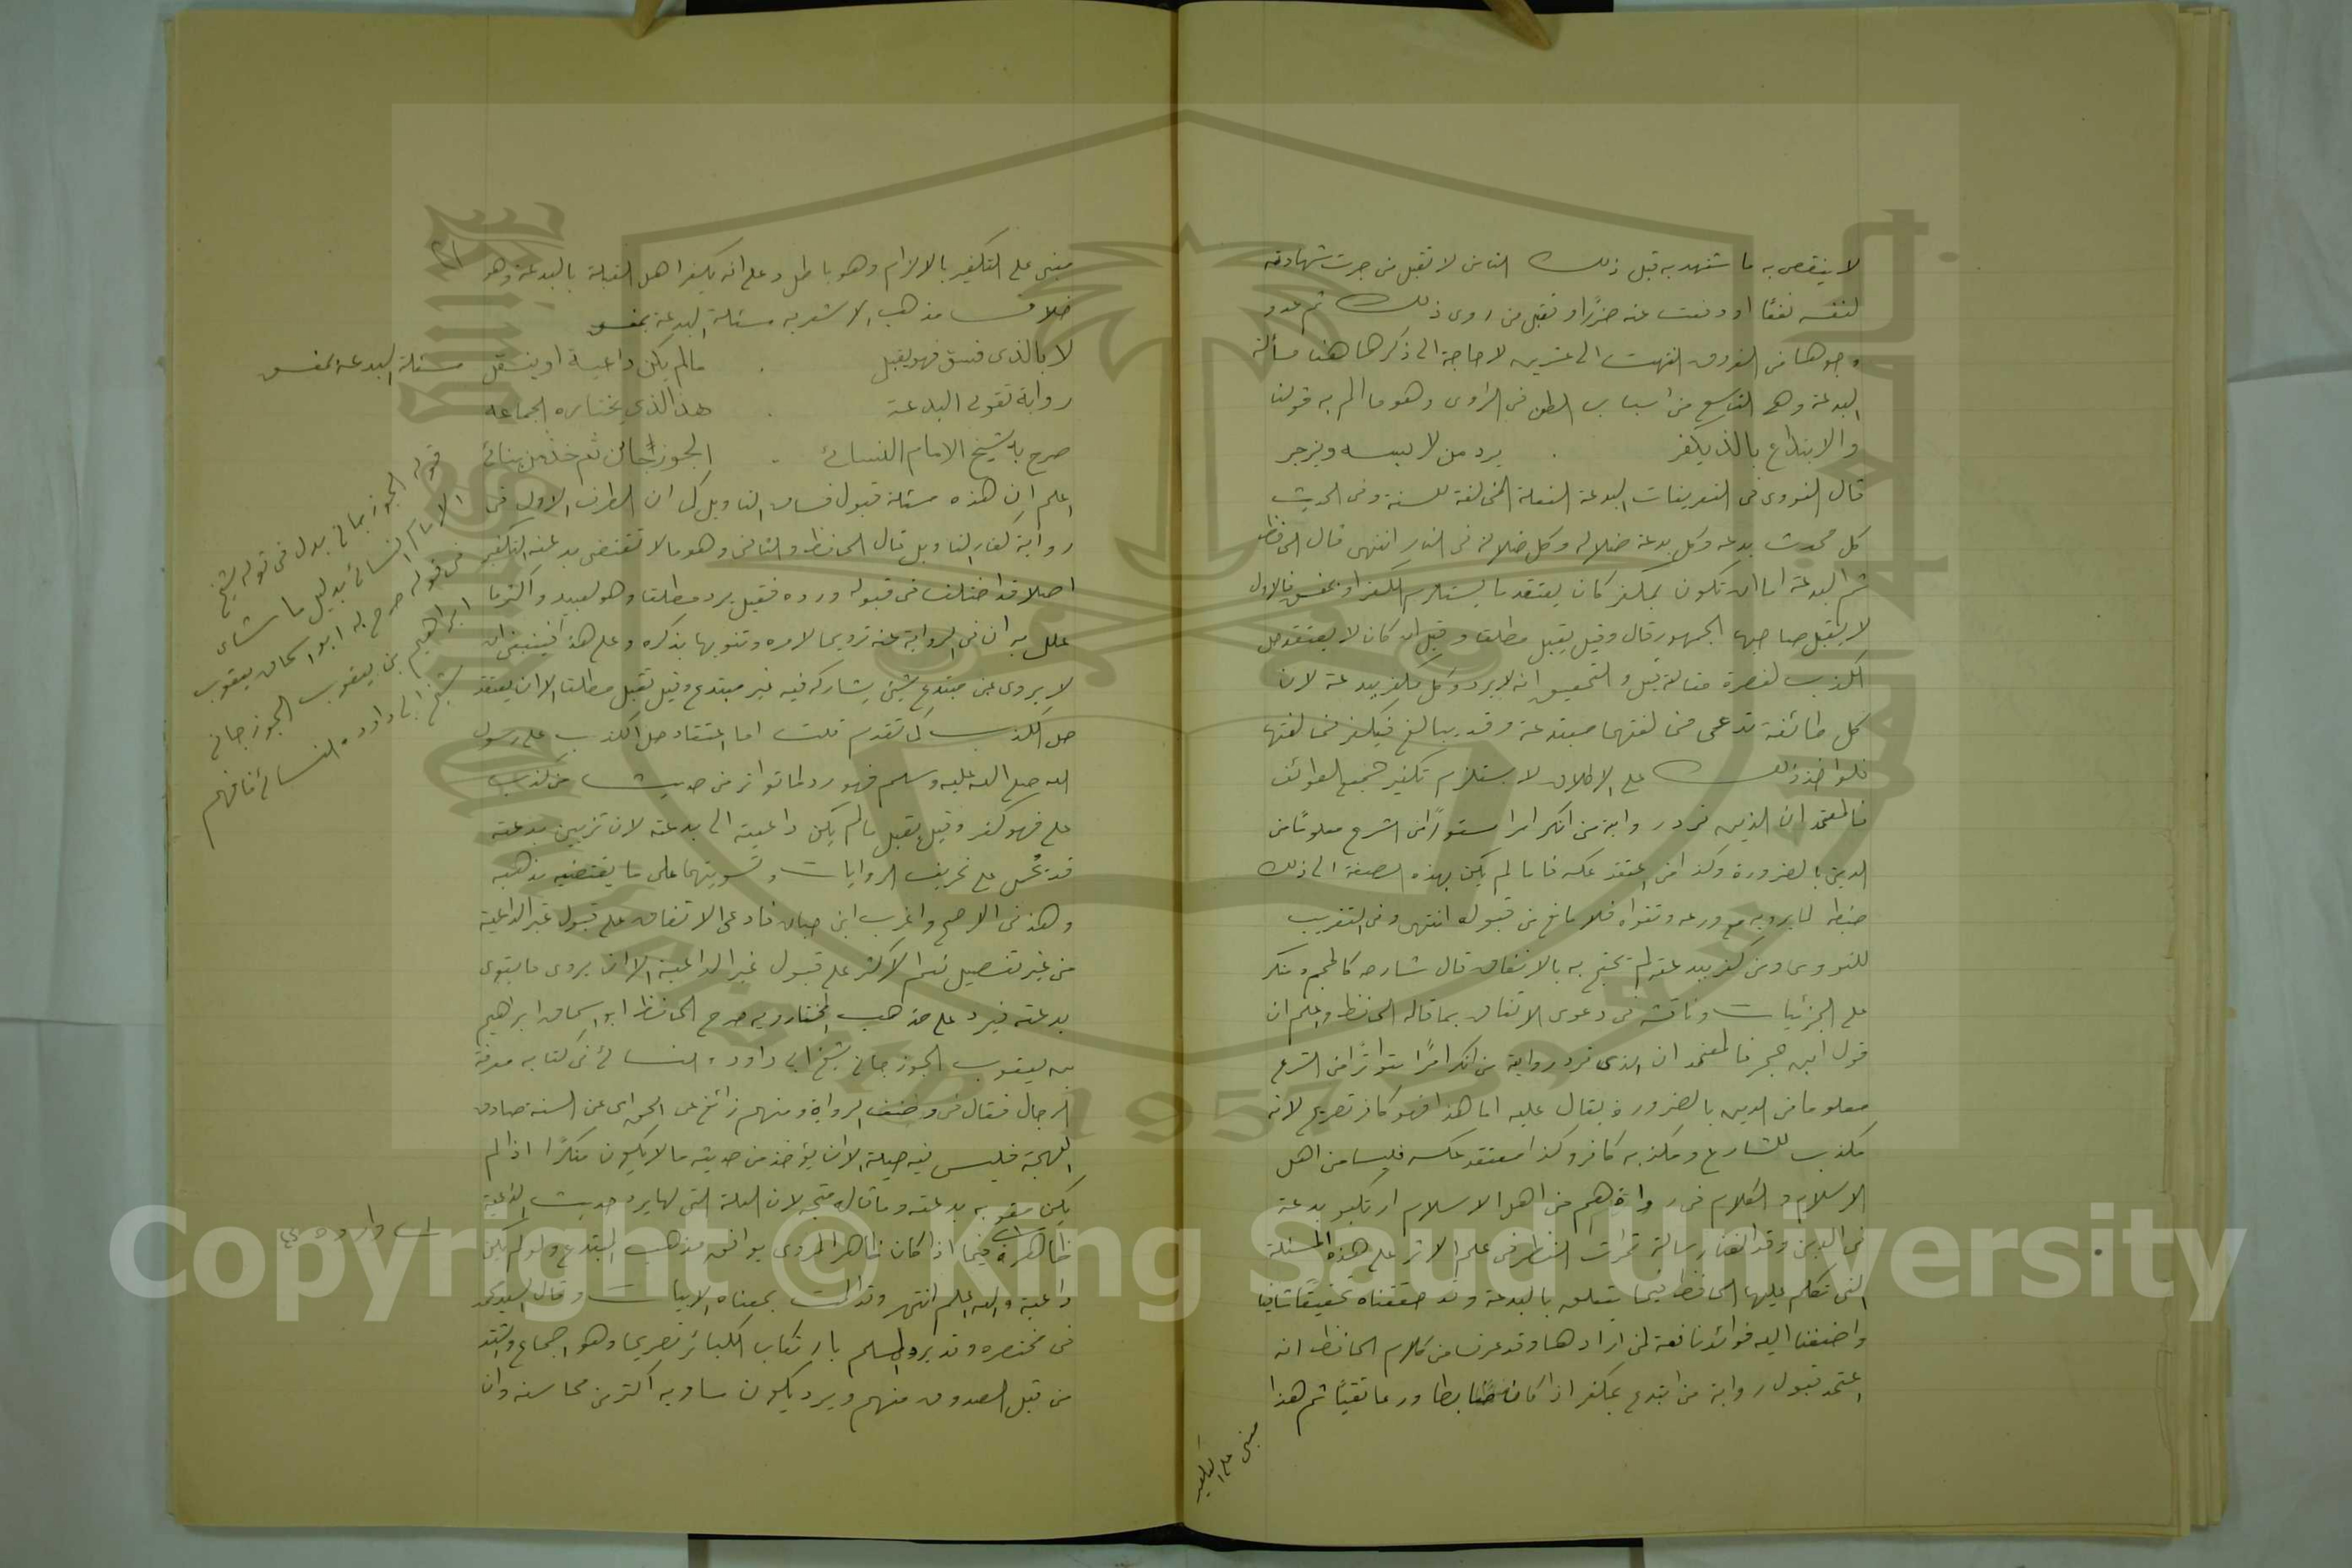 لا ينقص به ما شهد به قبل ذلك الثامن لا تقبل من جرت شهادته
لنفسه نفعًا او دفعت عنه ضررًا وتقبل من روى ذلك ثم عدو
وجوها من الفروق انتهت الى عشرين لا حاجة الى ذكرها هنا مسألة
البدعة وهي التاسع من أسباب الطعن في الراوي وهو ما الم به قولنا
والابتداع بالذي يكفر . يرد من لابسه ويزجر
قال النووي في التعريفات البدعة الفعلة المخالفة للسنة وفي الحديث
كل محدث بدعه وكل بدعة ضلالة وكل ضلالة في النار انتهى قال الحافظ
ثم البدعة اما ان تكون بمكفر كان يعتقد ما يستلزم الكفر او بمفسق فالاول
لا يقبل صاحبها الجمهور قال وقيل يقبل مطلقا وقيل ان كان لا يعتقد حل
الكذب لنصرة مقالة قبل والتحقيق انه لا يرد كل مكفر ببدعة لان
كل طائفة تدعى مخالفتها مبتدعة وقد يبالغ فيكفر مخالفتها
فلو اخذ ذلك على الاطلاق لاستلزم تكفير جميع الطوائف
فالمعتمد ان الذي ترد روايته من انكر امرا متواترًا من الشرع معلومًا من
الدين بالضرورة وكذا من اعتقد عكسه فاما لم يكن بهذه الصفة الى ذلك
ضبطه لما يرويه مع ورعه وتقواه فلا مانع من قبوله انتهى وفي التقريب
للنووي ومن كفر ببدعته لم يحتج به بالاتفاق قال شارحه كالمجسم ومنكر
علم الجزئيات وناقشه في دعوى الاتفاق بما قاله الحافظ واعلم ان
قول ابن حجر فالمعتمد ان الذي ترد روايته من انكر امرًا متواترًا من الشرع
معلوما من الدين بالضرورة يقال عليه اما هذا فهو كافر تصريح لانه
مكذب للشارع ومكذبه كافر وكذا معتقد عكسه فليسا من اهل
الاسلام والكلام في رواة هم من اهل الاسلام ارتكبو بدعة
في الدين وقد الفنا رسالة ثمرات النظر في علم الاثر على هذه المسئلة
التي تكلم عليها الحافظ فيما يتعلق بالبدعة وقد حققناه تحقيقًا شافيا
واضفنا اليه فوائد نافعة لمن ارادها وقد عرفت من كلام الحافظ انه
اعتمد قبول رواية من ابتدع بمكفر اذا كان ضابطا ورعا تقيًا ثم هذا
مبنى على التكفير
مبنى على التكفير بالالزام وهو باطل وعلى انه يكفر اهل القبلة بالبدعة وهو
خلاف مذهب الاشعريه مسئلة البدعة بمفسق
لا بالذي فسق فهو يقبل . مالم يكن داعية او ينقل
مسئلة البدعة بمفسق
رواية تقوي البدعة . هذا الذي يختاره الجماعه
صرح به شيخ الامام النسائي . الجوزجاني ثم خذ من بنائي
اعلم ان هذه مسئلة قبول فساق التاويل كما ان الطرف الاول في
رواية كفار التاويل قال الحافظ والثاني وهو مالا تقتضي بدعته التكفير
اصلا قد اختلف في قبوله ورده فقيل يرد مطلقا وهو بعيد واكثر ما
علل به ان في الرواية عنه ترويجا لامره وتنويها بذكره وعلى هذا فينبغي ان
لا يروى عن مبتدع شيئ يشاركه فيه غير مبتدع وقيل تقبل مطلقا الا ان يعتقد
حل الكذب كما تقدم قلت اما اعتقاد حل الكذب على رسول
الله صلى الله عليه وسلم فهو رد لما تواتر من حديث من كذب
علي فهو كفر وقيل يقبل مالم يكن داعية الى بدعته لان تزيين بدعته
قد تحمله على تحريف الروايات وتسويتها على ما يقتضيه مذهبه
وهذ في الاصح واغرب ابن حبان فادعى الاتفاق على قبول غير الداعية
من غير تفصيل نعم الاكثر على قبول غير الداعية الا ان يروى ما يقوى
بدعته فيرد على مذهب المختار وبه صرح الحافظ ابو اسحاق ابراهيم
بن يعقوب الجوزجاني شيخ ابي داود والنسائي في كتابه معرفة
الرجال فقال في وصف الرواة ومنهم زائغ عن الحق اى عن السنة صادق
اللهجة فليس فيه حيلة الا ان يؤخذ من حديثه ما لا يكون منكرًا اذا لم
يكن مقو به بدعته وما قاله متجه لان العلة التي لها يرد حديث الداعية
ظاهرة فيما اذا كان ظاهر المروى يوافق مذهب المبتدع ولو لم يكن
داعية والله اعلم انتهى وقد المت بمعناه الابيات وقال السيد محمد
في مختصره وقد يرد المسلم بارتكاب الكبائر تصريحا وهو اجماع وشذ
من قبل الصدوق منهم ويرد بكون مساويه اكثر من محاسنه وان
قوله الجوزجاني بدل من قوله شيخ
الامام النسائي بدليل ما سيأتي
في قوله صرح به ابو اسحاق يعقوب
ابراهيم بن يعقوب الجوزجاني
شيخ ابي داود والنسائي فافهم
Copyright © King Saud University
1957